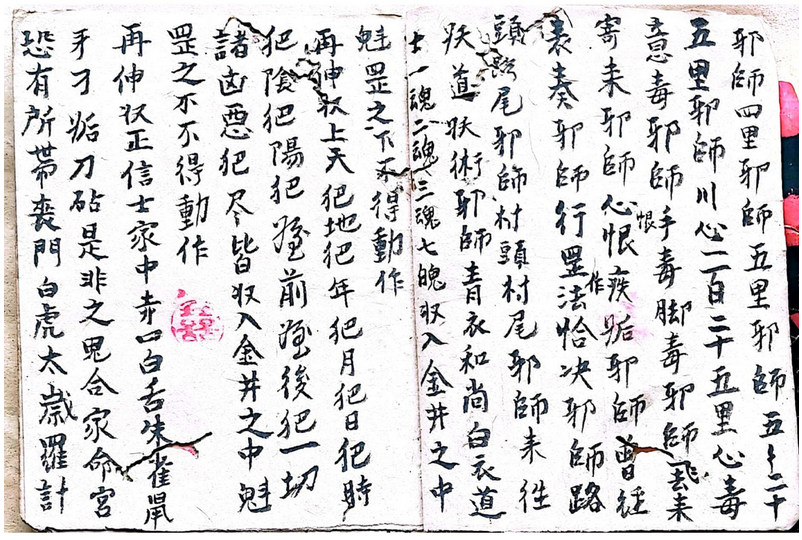 邪師四里邪師五里邪師五々二十
五里邪師川心二百二十五里心毒
意毒邪師手毒脚毒邪師飛來
恨
寄來邪師心恨疾垢邪師曾經
作
表奏邪師行罡法恰决邪師路
頭路尾邪師村頭村尾邪師来往
妖道妖術邪師青衣和尚白衣道
士一魂二魂三魂七魄収入金井之中
魁罡之下不得動作
再伸収上天犯地犯年犯月犯日犯時
犯陰犯陽犯前後犯一切
諸凶惡犯尽皆収入金井之中魁
罡之不不得動作
再伸収正信士家中赤口白舌朱雀鼠
牙刁垢刀砧是非之鬼合家命宮
恐有所带喪門白虎太歲羅計